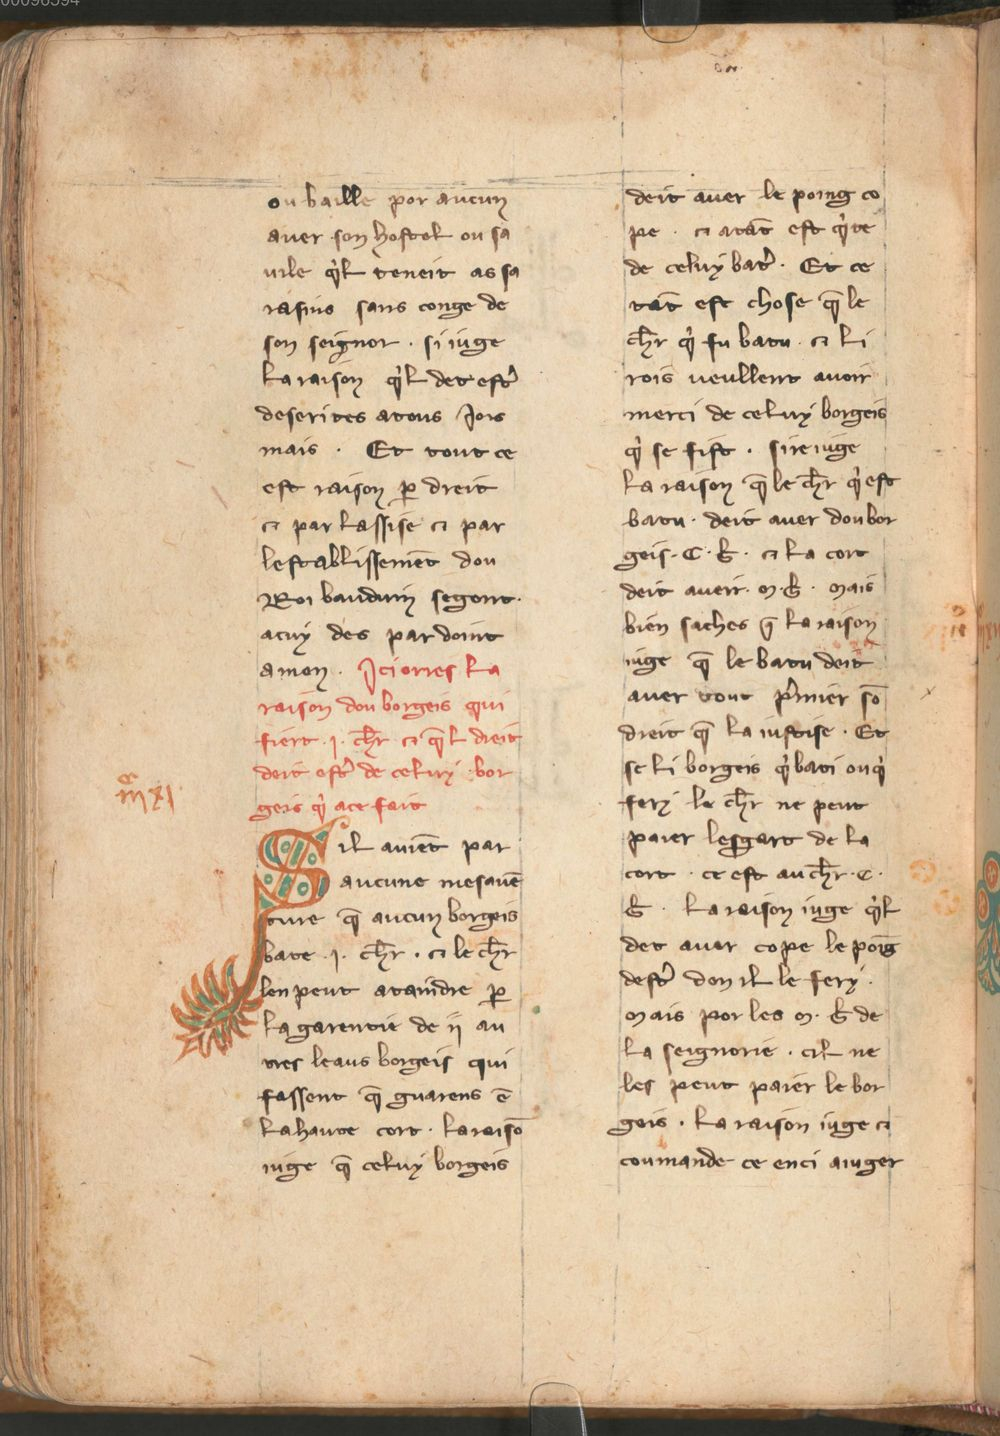 00096594
ou baille por aucun
auer son hostel ou sa
uile q'l teneit as sa
rasins sans conge de
son seignor . si iuge
la raison q'l det estr̕
deserites a tous Jors
mais . Et tout ce
est raison p̱ dreit
⁊ par lassise ⁊ par
lestablissemēt dou
Roi bauduin segont .
a cuy des pardoint
amen . Jci orres la
raison dou borgeis qui
fiert .j. ch̄r ⁊ q̄l dreit
deit estr̕ de celuy bor
geis q' a ce fait
Sil auiēt par
aucune mesauē
ture q̄ aucun borgeis
bate .j. ch̄r . ⁊ le ch̄r
len peut ataindre p̱
la garentie de ij au
tres leaus borgeis qui
fassent q̄ guarens ē
la haute cort . la raisō
iuge q̄ celuy borgeis
deit auer le poing co
pe . ⁊ atāt est q'te
de celuy batr̕ . Et ce
tāt est chose q̄ le
ch̄r q' fu batu . ⁊ li
rois ueullent auoir
merci de celuy borgeis
q' se fist . si re iuge
la raison q̄ le ch̄r q' est
batu . deit auer dou bor
geis . C . b̶ . ⁊ la cort
deit aueir . m . b̶ . mais
bien saches q̄ la raison
iuge q̄ le batu deit
auer tout p'mier sō
dreit q̄ la iustise . Et
se li borgeis q' bati ou q'
fery le ch̄r ne peut
paier lesgart de la
cort . ce est au ch̄r . C .
b̶ . la raison iuge q'l
det auer cope le poīg
destr̕ don il le fery .
mais por les m . b̶ de
la seignorie . cil ne
les peut paier le bor
geis . la raison iuge ⁊
coumande ce enci a iuger